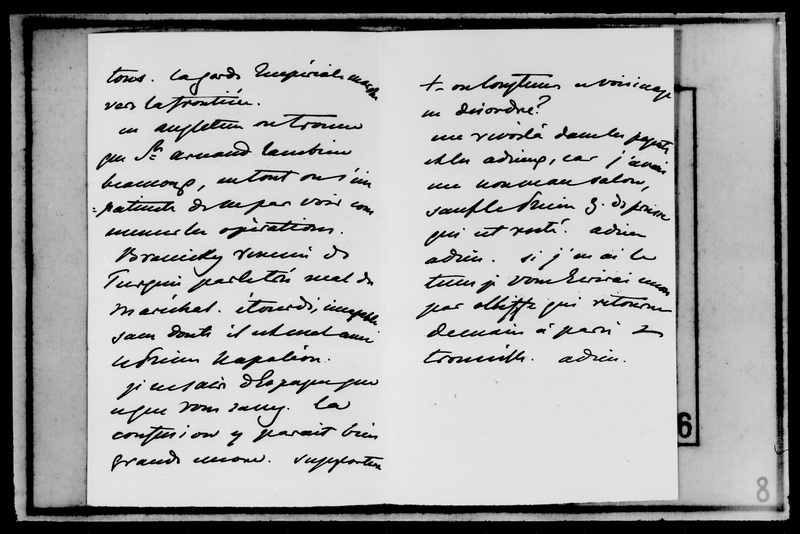 tous. la garde Impériale marche
vers la frontière.
en angleterre on trouve
que St arnaud lambine
beaucoup, surtout on s'im
=patiente de ne pas voir com
mencer les opérations.
Branicky revenu de
Turquie parle très mal du
maréchal. étourdi, incapable
sans doute il est mal avec
le Prince Napoléon.
je ne sais d'Espagne que
ce que vous savez. la
confusion y parait bien
grande encore. supportera
t-on longtems ce voisinage
en désordre?
me revoilà dans les paquets
et les adieux, car j'avais
un nouveau salon,
sauf le Prince G. de prusse
qui est resté. adieu
adieu. si j'en ai le
tems je vous écrirai encore
par qui retourne
demain à paris
trouville. adieu.
6
8